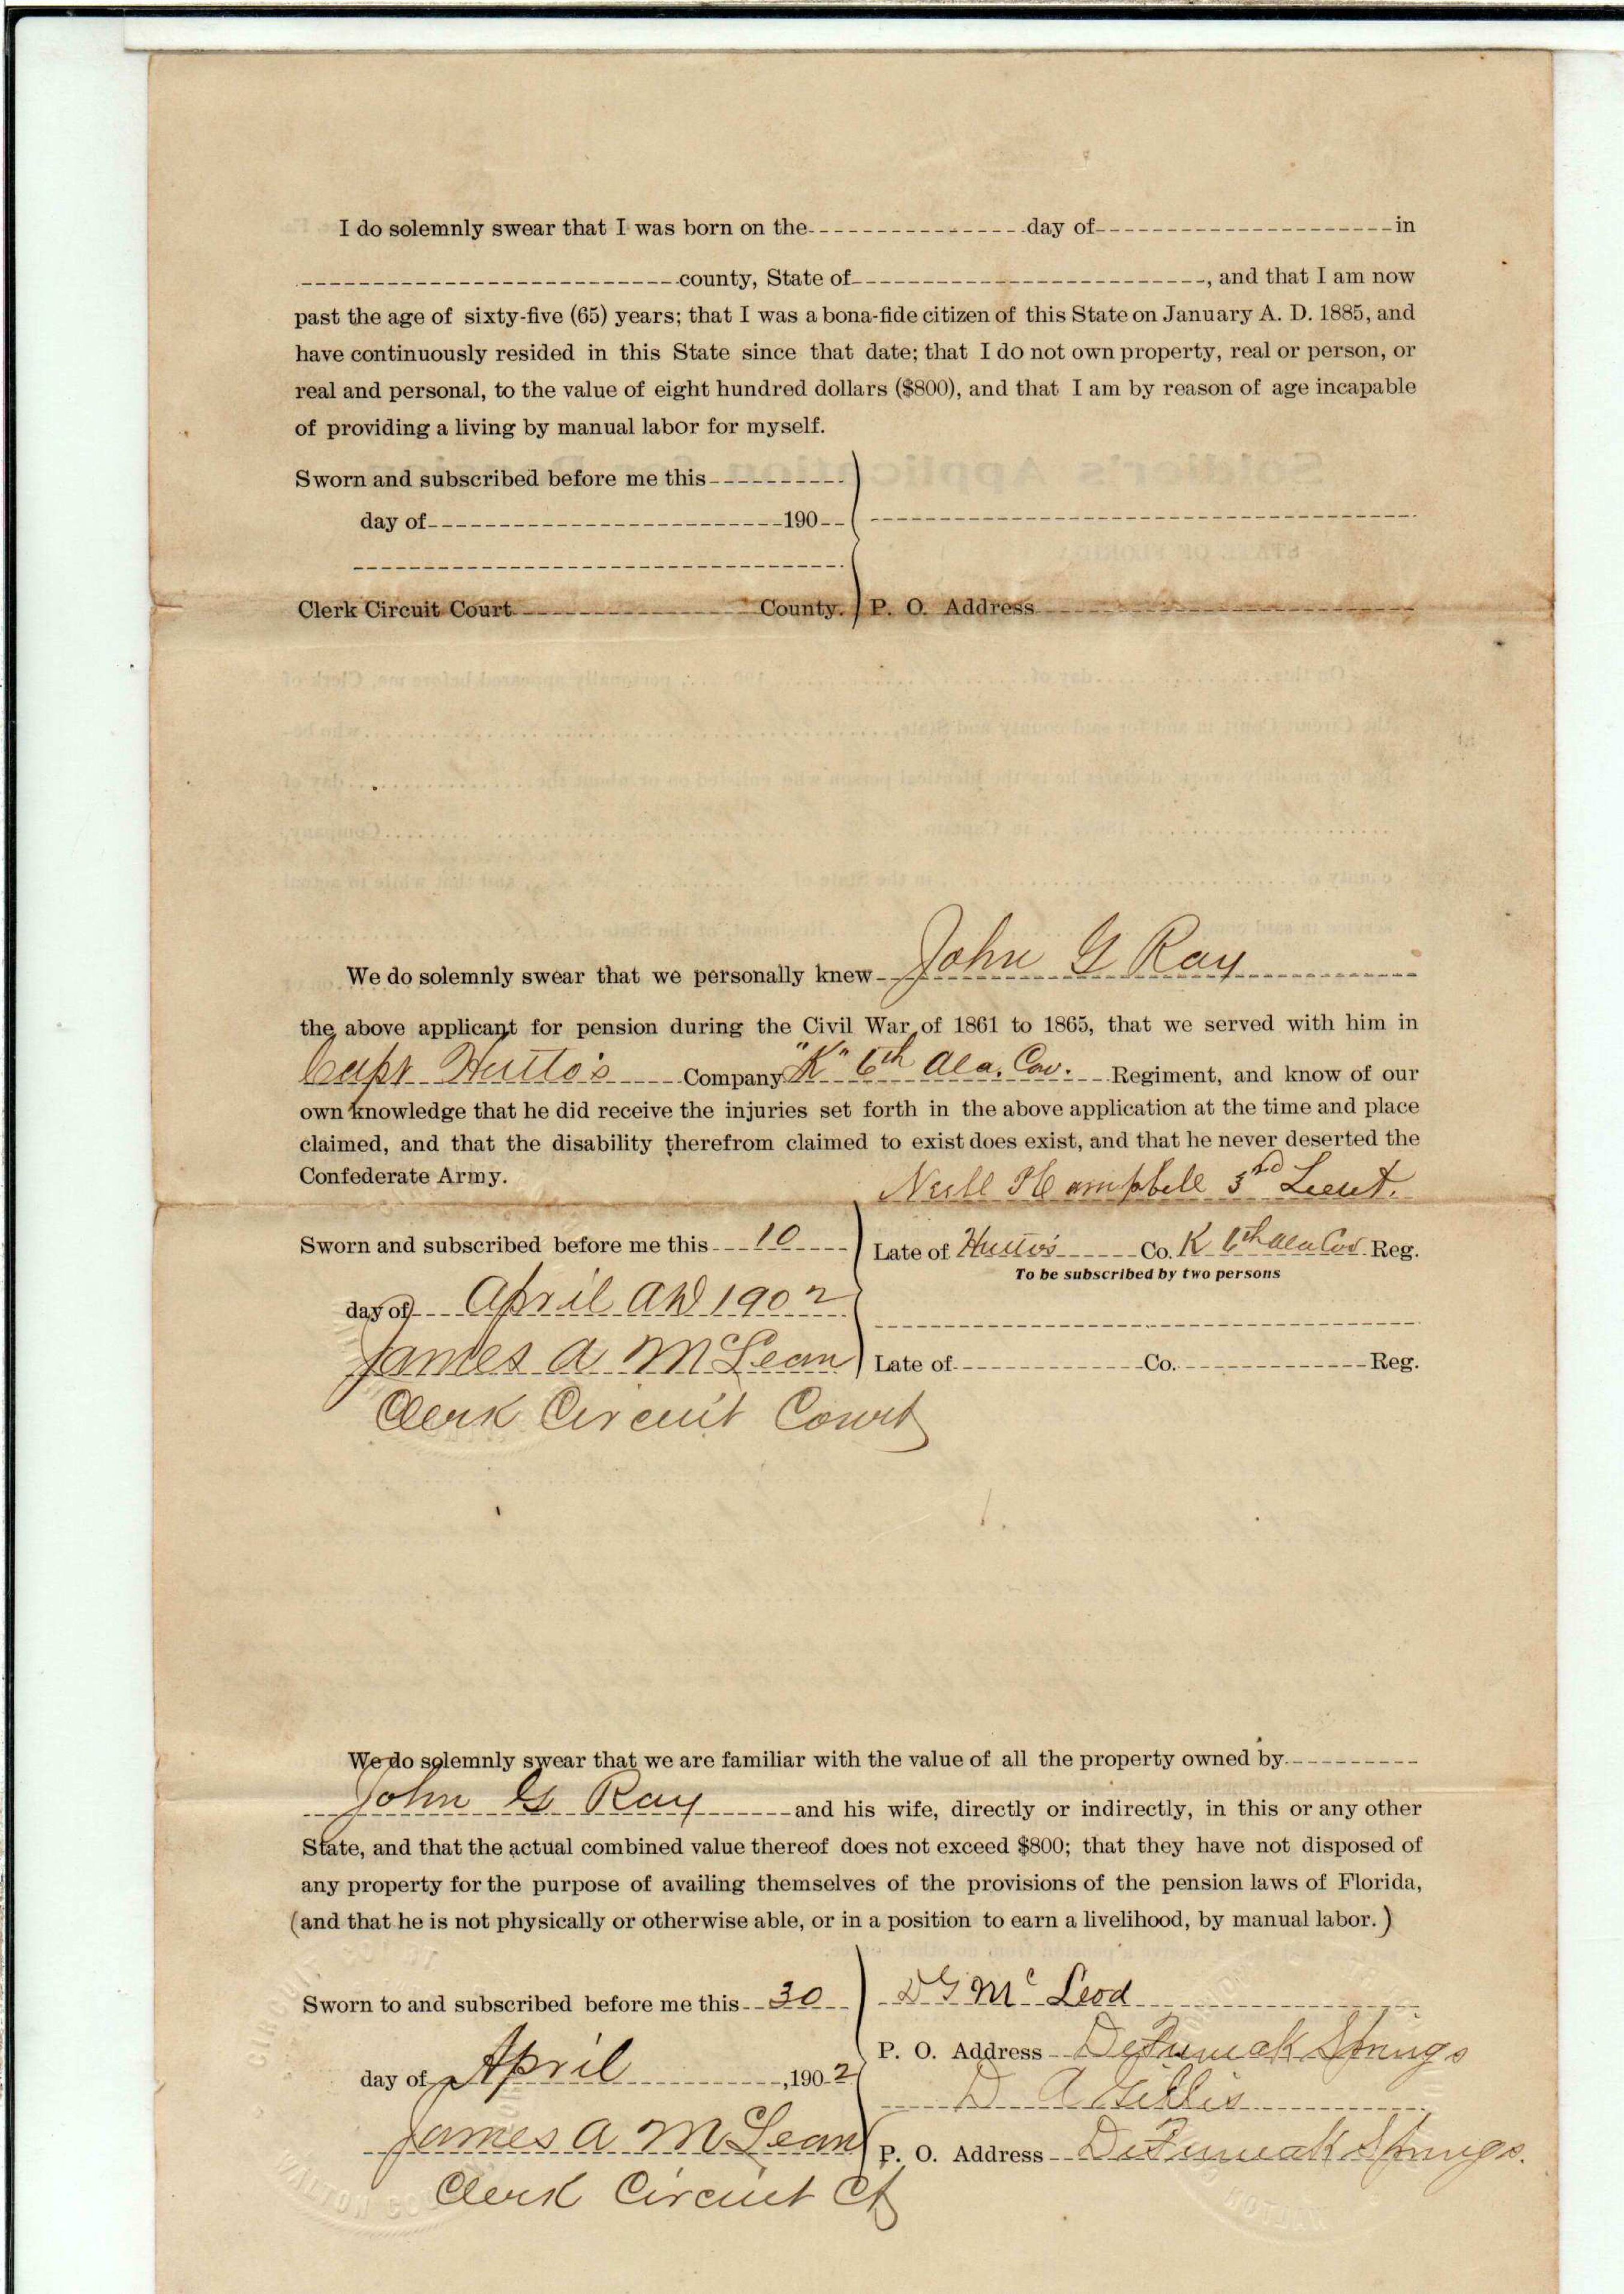 I do solemnly swear that I was born on the day of in
county, State of , and that I am now
past the age of sixty-five (65) years; that I was a bona-fide citizen of this State on January A. D. 1885, and
have continuously resided in this State since that date; that I do not own property, real or person, or
real and personal, to the value of eight hundred dollars ($800), and that I am by reason of age incapable
of providing a living by manual labor for myself.
Sworn and subscribed before me this
day of 190
Clerk Circuit Court County. P. O. Address
We do solemnly swear that we personally knew John G Ray
the above applicant for pension during the Civil War of 1861 to 1865, that we served with him in
Capt Hutto's Company "K" 6th Ala. Cav. Regiment, and know of our
own knowledge that he did receive the injuries set forth in the above application at the time and place
claimed, and that the disability therefrom claimed to exist does exist, and that he never deserted the
Confederate Army.
Neill Campbell 3rd Lieut.
Sworn and subscribed before me this 10
Late of Hutto's Co. K 6th Ala Cav Reg.
To be subscribed by two persons
day of April AD 1902
James A McLean
Late of Co. Reg.
Clerk Circuit Court
We do solemnly swear that we are familiar with the value of all the property owned by
John G Ray and his wife, directly or indirectly, in this or any other
State, and that the actual combined value thereof does not exceed $800; that they have not disposed of
any property for the purpose of availing themselves of the provisions of the pension laws of Florida,
(and that he is not physically or otherwise able, or in a position to earn a livelihood, by manual labor.)
Sworn to and subscribed before me this 30
D G McLeod
P. O. Address DeFuniak Springs
day of April , 1902
D A Gillis
James A McLean
P. O. Address DeFuniak Springs.
Clerk Circuit Ct